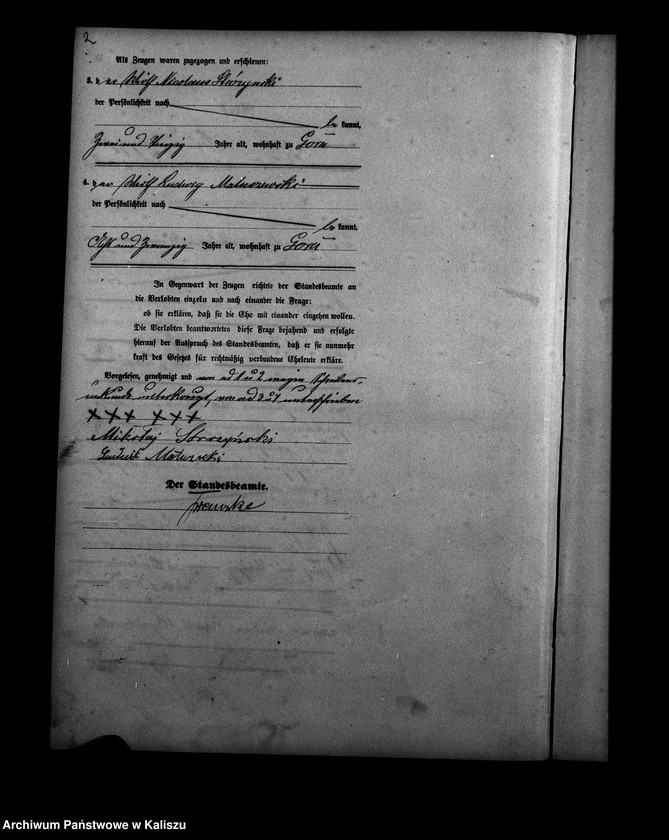 2
Als Zeugen waren zugezogen und erschienen:
3. der Wirth Nicolaus
der Persönlichkeit nach
be kannt,
Zwei und Jahre alt, wohnhaft zu Gora
4. der Wirth Ludwig Matuszewski
der Persönlichkeit nach
be kannt,
Acht und Zwanzig Jahre alt, wohnhaft zu Gora
In Gegenwart der Zeugen richtete der Standesbeamte an
die Verlobten einzeln und nach einander die Frage:
ob sie erklären, daß sie die Ehe mit einander eingehen wollen.
Die Verlobten beantworteten diese Frage bejahend und erfolgte
hierauf der Ausspruch des Standesbeamten, daß er sie nunmehr
kraft des Gesetzes für rechtmäßig verbundene Eheleute erkläre.
Vorgelesen, genehmigt und von ad 1 u 2 wegen Schreibens-
unkunde unterkreuzt, von ad 3 u 4 unterschrieben
XXX XXX
Mikołaj
Der Standesbeamte.
Archiwum Państwowe w Kaliszu